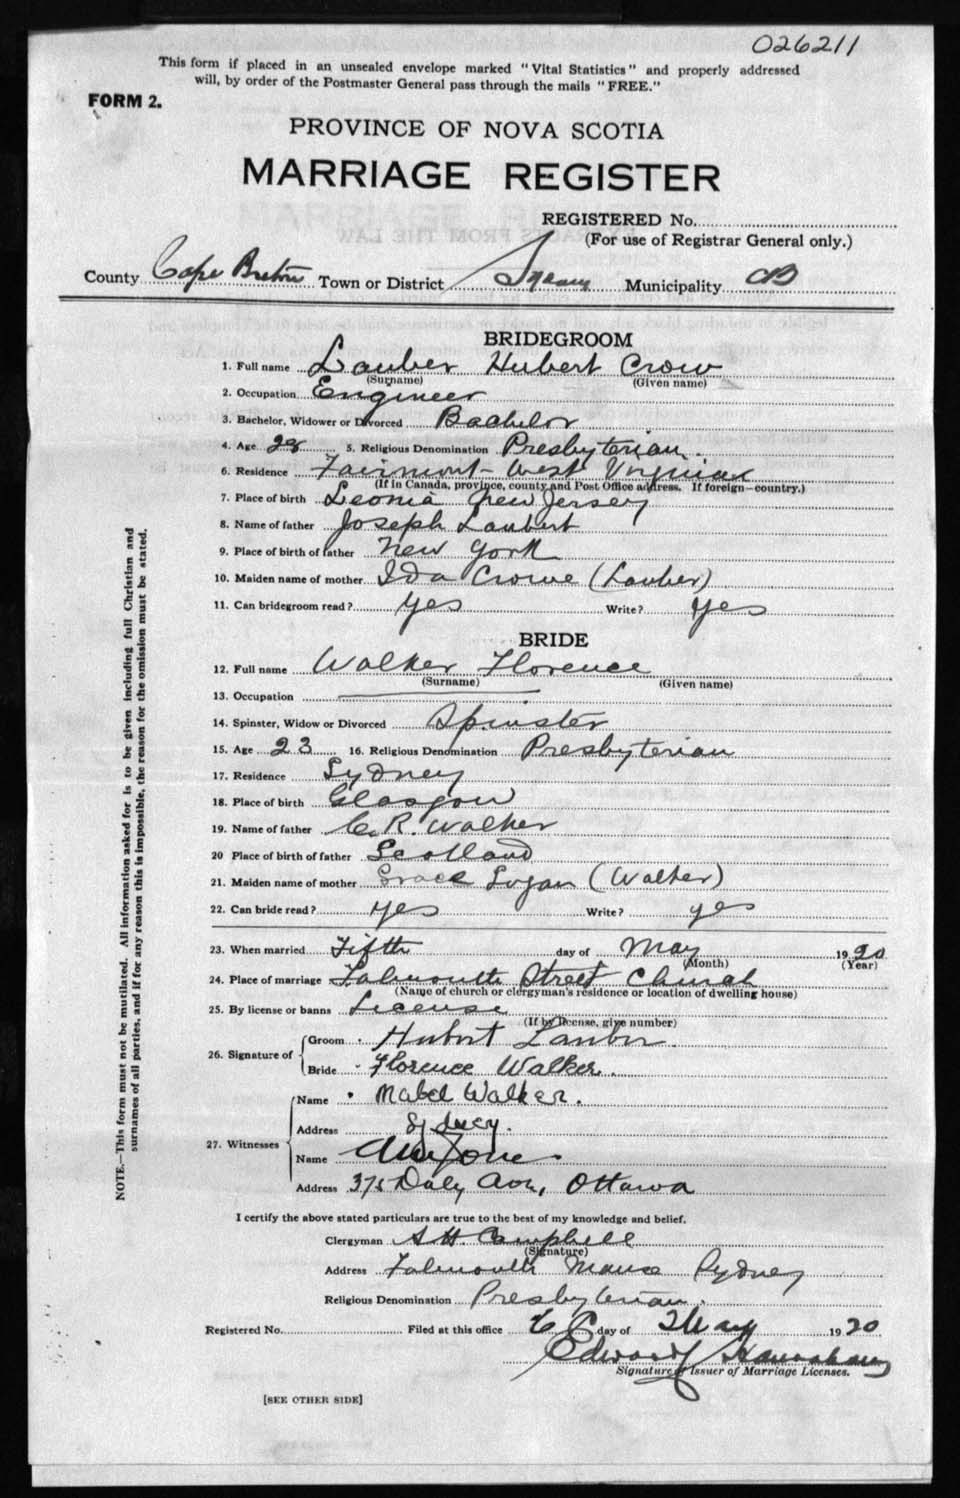 026211
This form if placed in an unsealed envelope marked "Vital Statistics" and properly addressed
will, by order of the Postmaster General pass through the mails "FREE."
FORM 2.
PROVINCE OF NOVA SCOTIA
MARRIAGE REGISTER
REGISTERED No.
(For use of Registrar General only.)
County Cape Breton Town or District Sydney Municipality CB
BRIDEGROOM
1. Full name Lauber Hubert Crow
(Surname) (Given name)
2. Occupation Engineer
3. Bachelor, Widower or Divorced Bachelor
4. Age 28 5. Religious Denomination Presbyterian.
6. Residence Fairmont West Virginia
(If in Canada, province, county and Post Office address. If foreign—country.)
7. Place of birth Leonia New Jersey
8. Name of father Joseph Laubert
9. Place of birth of father New York
10. Maiden name of mother Ida Crowe (Lauber)
11. Can bridegroom read? yes Write? yes
BRIDE
12. Full name Walker Florence
(Surname) (Given name)
13. Occupation
14. Spinster, Widow or Divorced Spinster
15. Age 23 16. Religious Denomination Presbyterian
17. Residence Sydney
18. Place of birth Glasgow
19. Name of father C. R. Walker
20 Place of birth of father Scotland
21. Maiden name of mother Grace Logan (Walker)
22. Can bride read? yes Write? yes
23. When married Fifth day of May 1920
(Month) (Year)
24. Place of marriage Falmouth Street Church
(Name of church or clergyman's residence or location of dwelling house)
25. By license or banns License
(If by license, give number)
26. Signature of
Groom Hubert Lauber.
Bride Florence Walker.
27. Witnesses
Name Mabel Walker.
Address Sydney.
Name
Address 375 Daly Ave, Ottawa
I certify the above stated particulars are true to the best of my knowledge and belief.
Clergyman A H. Campbell
(Signature)
Address Falmouth Manse Sydney
Religious Denomination Presbyterian.
Registered No. Filed at this office 6 day of May 1920
Edward
Signature of Issuer of Marriage Licenses.
[SEE OTHER SIDE]
NOTE.—This form must not be mutilated. All information asked for is to be given including full Christian and
surnames of all parties, and if for any reason this is impossible, the reason for the omission must be stated.